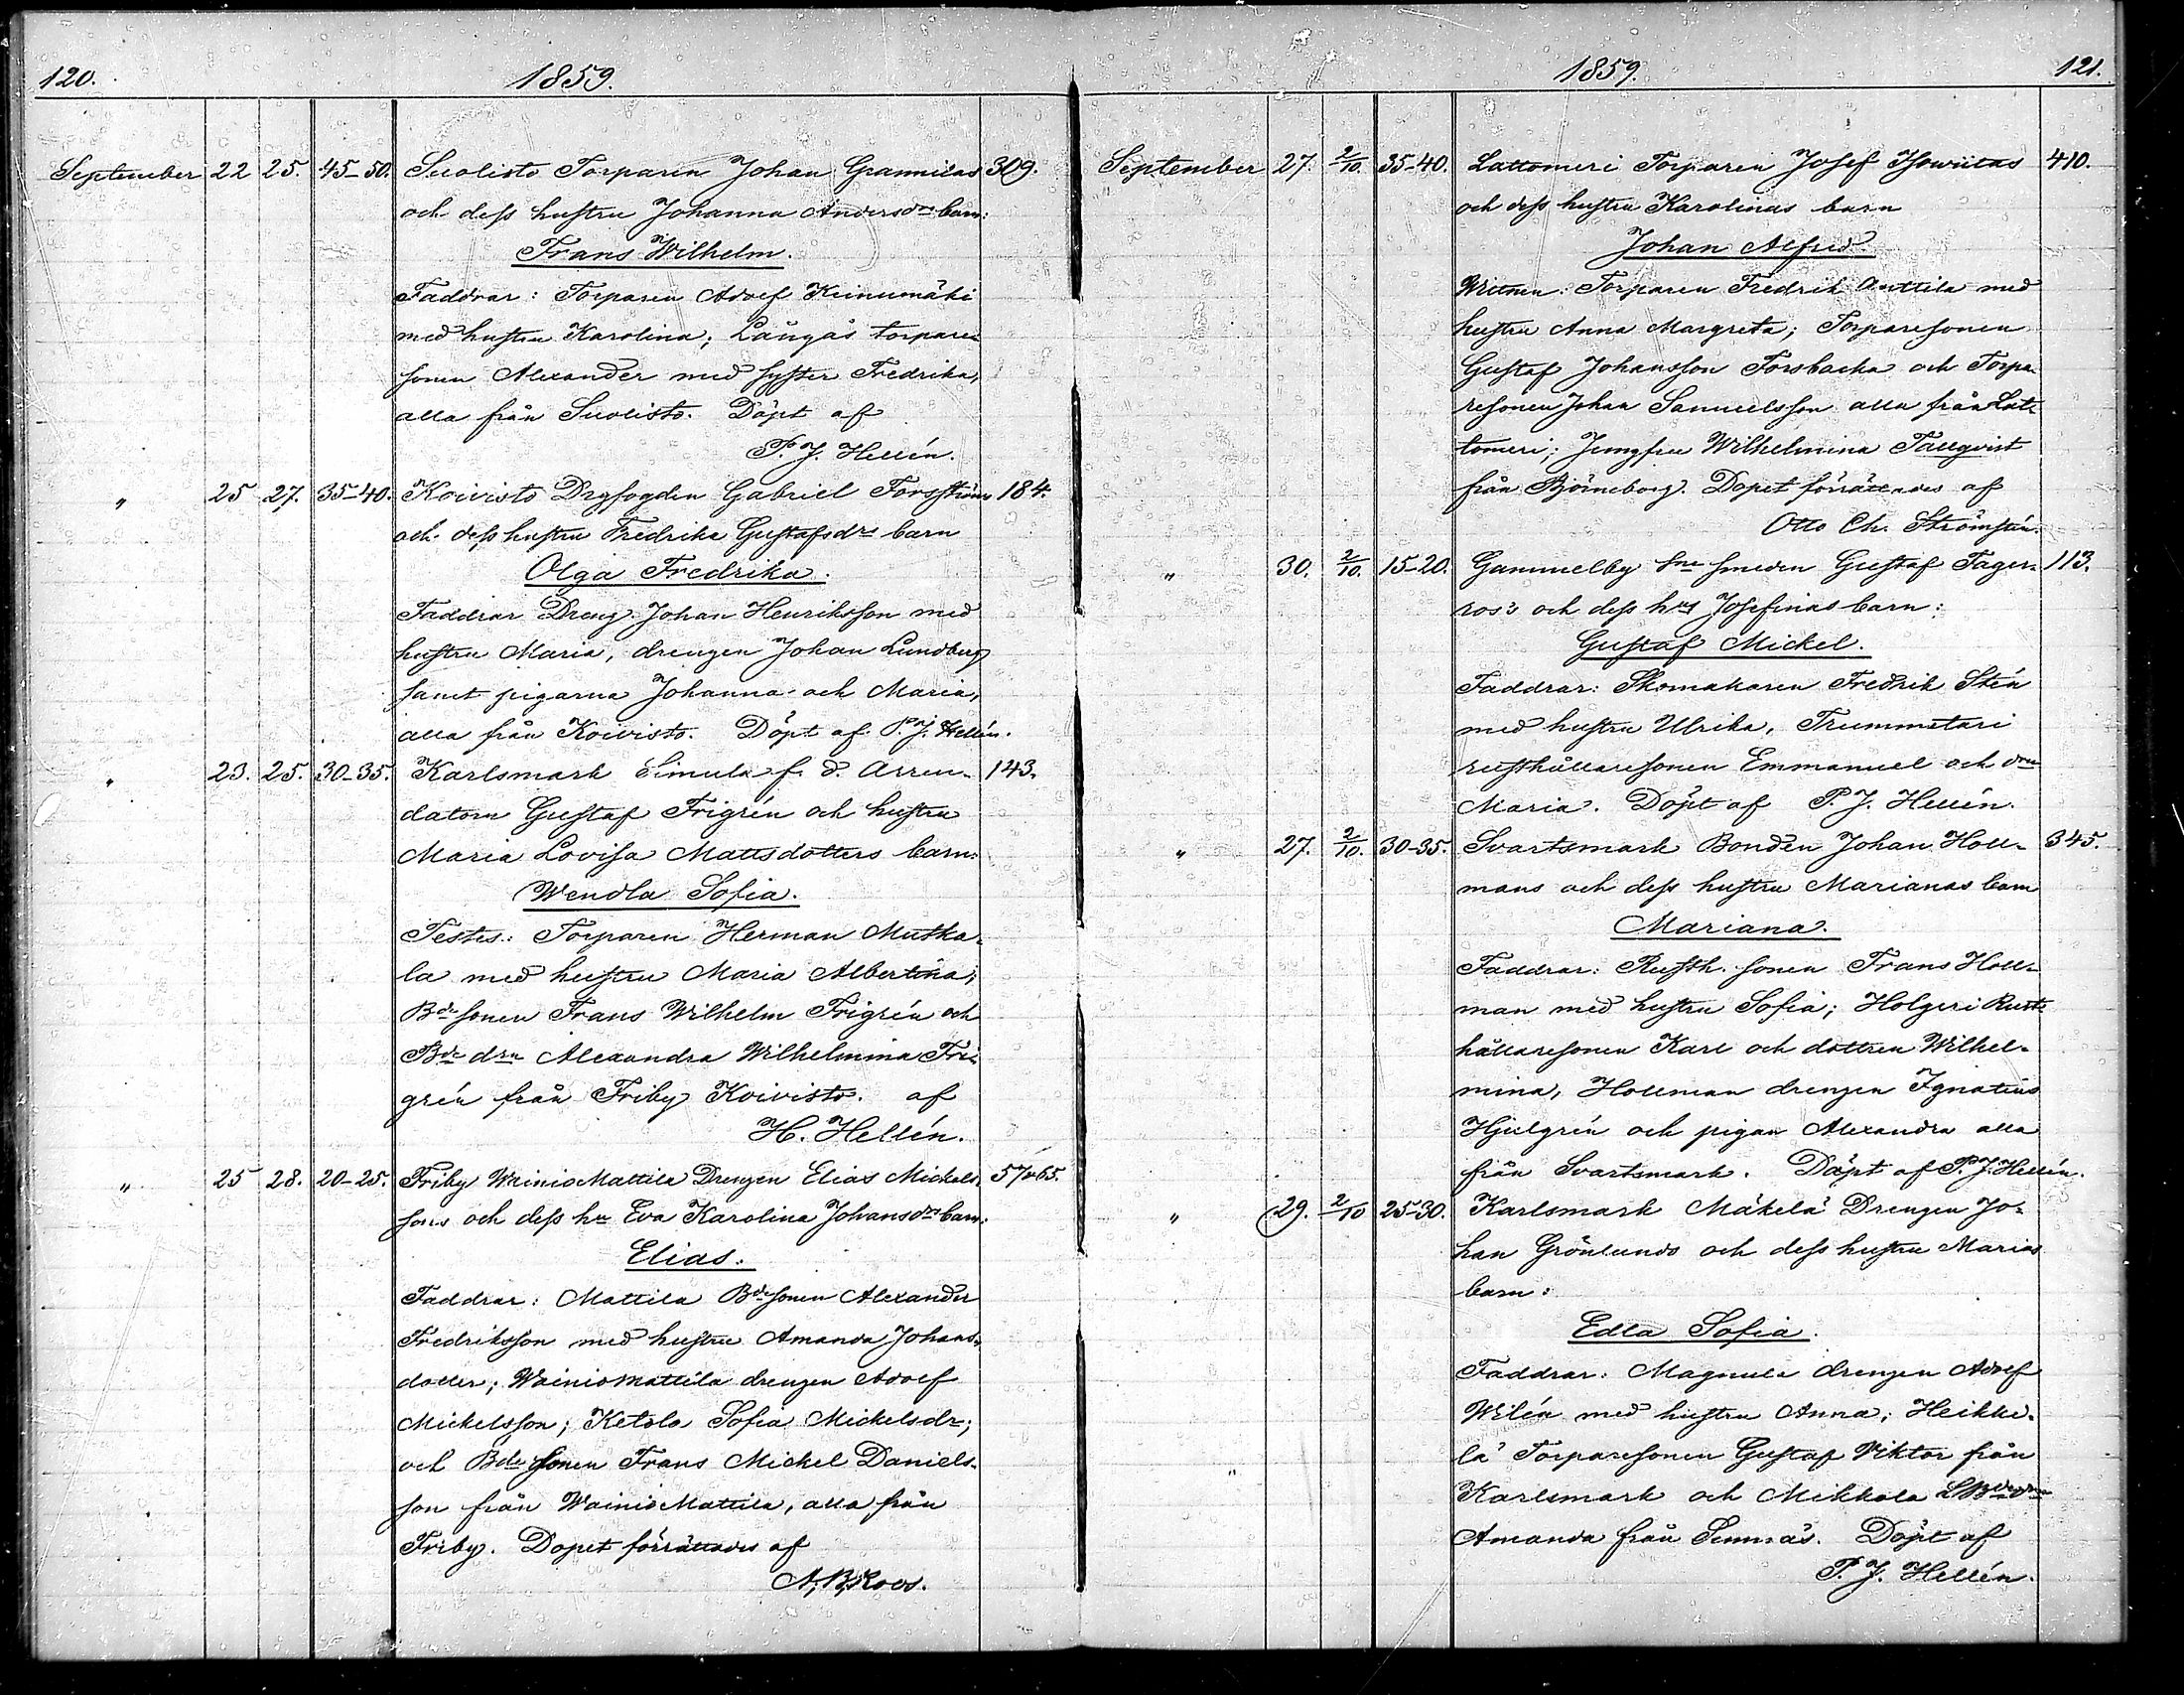 120. 1859.
September 22 25. 45-50. Suolisto Torparen Johan Grannilas 309.
och dess hustru Johanna Andersdrs barn:
Frans Wilhelm.
Faddrar: Torparen Adolf Keinumäki
med hustru Karolina; Långås torpare
sonen Alexander med syster Fredrika,
alla från Suolisto. Döpt af
P. J. Hellén.
" 25 27. 35-40. Koivisto Drgfogden Gabriel Forsströms 184.
och dess hustru Fredrika Gustafsdrs barn
Olga Fredrika.
Faddrar Dreng. Johan Henriksson med
hustru Maria, drengen Johan Lundberg
samt pigorna Johanna och Maria,
alla från Koivisto. Döpt af P. J. Hellén.
" 23. 25. 30-35. Karlsmark Simula f. d. Arren- 143.
datorn Gustaf Frigrén och hustru
Maria Lovisa Mattsdotters barn:
Wendla Sofia.
Testes: Torparen Herman Mutka-
la med hustru Maria Albertina;
Bdesonen Frans Wilhelm Frigrén och
Bde drn Alexandra Wilhelmina Fri-
grén från Friby Koivisto. af
H. Hellén.
" 25 28. 20-25. Friby WainioMattila Drengen Elias Mickels- 57&65.
sons och dess hu Eva Karolina Johansdrs barn:
Elias.
Faddrar: Mattila Bdesonen Alexander
Fredriksson med hustru Amanda Johans-
dotter; Wainiomattila drengen Adolf
Mickelsson; Ketola Sofia Mickelsdr;
och Bde sonen Frans Mickel Daniels-
son från WainioMattila, alla från
Friby. Dopet förrättades af
A. B. Roos.
1859. 121.
September 27. 2/10. 35-40. Lattomeri Torparen Josef 410.
och dess hustru Karolinas barn
Johan Alfred.
Wittnen: Torparen Fredrik Anttila med
hustru Anna Margreta; Torparesonen
Gustaf Johansson Forsbacka och Torpa-
resonen Johan Samuelsson alla från Lat-
tomeri; Jungfru Wilhelmina Tallqvist
från Björneborg. Dopet förrättades af
Otto Ch. Strömstén.
" 30. 2/10. 15-20. Gammelby Sne smeden Gustaf Fager- 113.
ros's och dess hrs Josefinas barn:
Gustaf Mickel.
Faddrar: Skomakaren Fredrik Stén
med hustru Ulrika, Trummetari
rusthållaresonen Emmanuel och drn
Maria. Döpt af P. J. Hellén.
" 27. 2/10. 30-35. Svartsmark Bonden Johan Holl- 345.
mans och dess hustru Marianas barn
Mariana.
Faddrar: Rusth. sonen Frans Holl-
man med hustru Sofia; Holgeri Rust-
hållaresonen Karl och dottren Wilhel-
mina, Hollman drengen Ignatius
Hjulgrén och pigan Alexandra alla
från Svartsmark. Döpt af P. J. Hellén.
" 29. 2/10 25-30. Karlsmark Mäkelä Drengen Jo-
han Grönlunds och dess hustru Marias
barn:
Edla Sofia.
Faddrar: Magnula drengen Adolf
Wilén med hustru Anna; Heikki-
lä Torparesonen Gustaf Viktor från
" Karlsmark och Mikkola
Amanda från Sunnäs. Döpt af
P. J. Hellén.